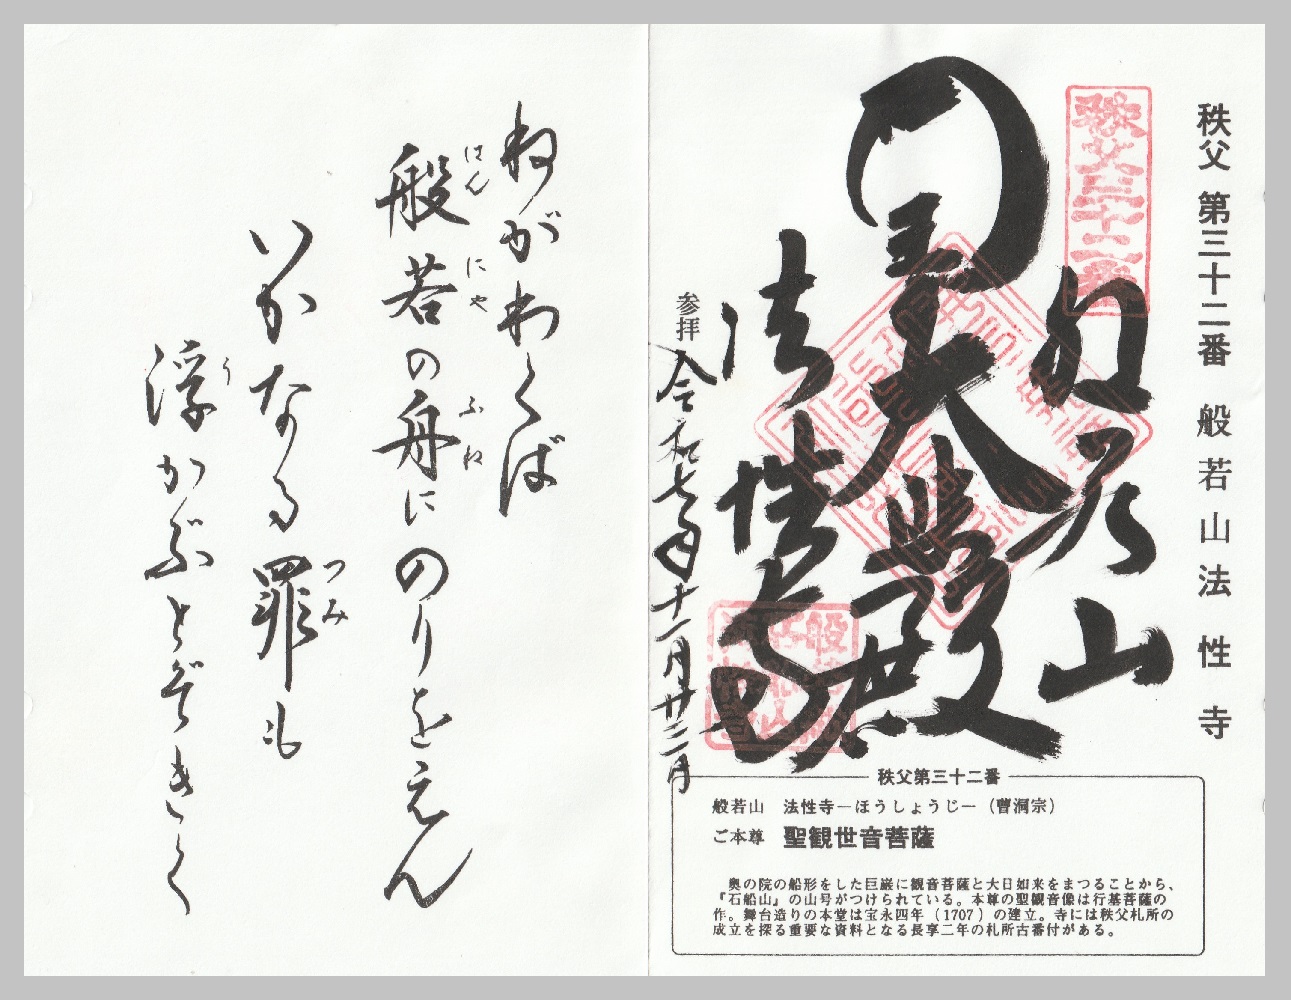 秩父 第三十二番 般若山 法性寺
秩父三十二番
般若山
大悲殿
法性寺
参拝 令和七年十一月廿二日
秩父第三十二番
般若山 法性寺―ほうしょうじ―（曹洞宗）
ご本尊 聖観世音菩薩
奥の院の船形をした巨巌に観音菩薩と大日如来をまつることから、
『石船山』の山号がつけられている。本尊の聖観音像は行基菩薩の
作。舞台造りの本堂は宝永四年（1707）の建立。寺には秩父札所の
成立を探る重要な資料となる長享二年の札所古番付がある。
ねがわくば
般若の舟にのりをえん
はんにゃ ふね
いかなる罪も
つみ
浮かぶとぞきく
う